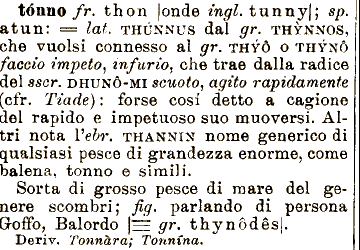 tónno fr. thon |onde ingl. tunny|; sp.
atun: = lat. THÚNNUS dal gr. THÝNNOS,
che vuolsi connesso al gr. THÝÔ o THÝNÔ
faccio impeto, infurio, che trae dalla radice
del sscr. DHUNÔ-MI scuoto, agito rapidamente
(cfr. Tiade): forse cosí detto a cagione
del rapido e impetuoso suo muoversi. Al-
tri nota l'ebr. THANNIN nome generico di
qualsiasi pesce di grandezza enorme, come
balena, tonno e simili.
Sorta di grosso pesce di mare del ge-
nere scombri; fig. parlando di persona
Goffo, Balordo |≡ gr. thynôdês|.
Deriv. Tonnàra; Tonnína.